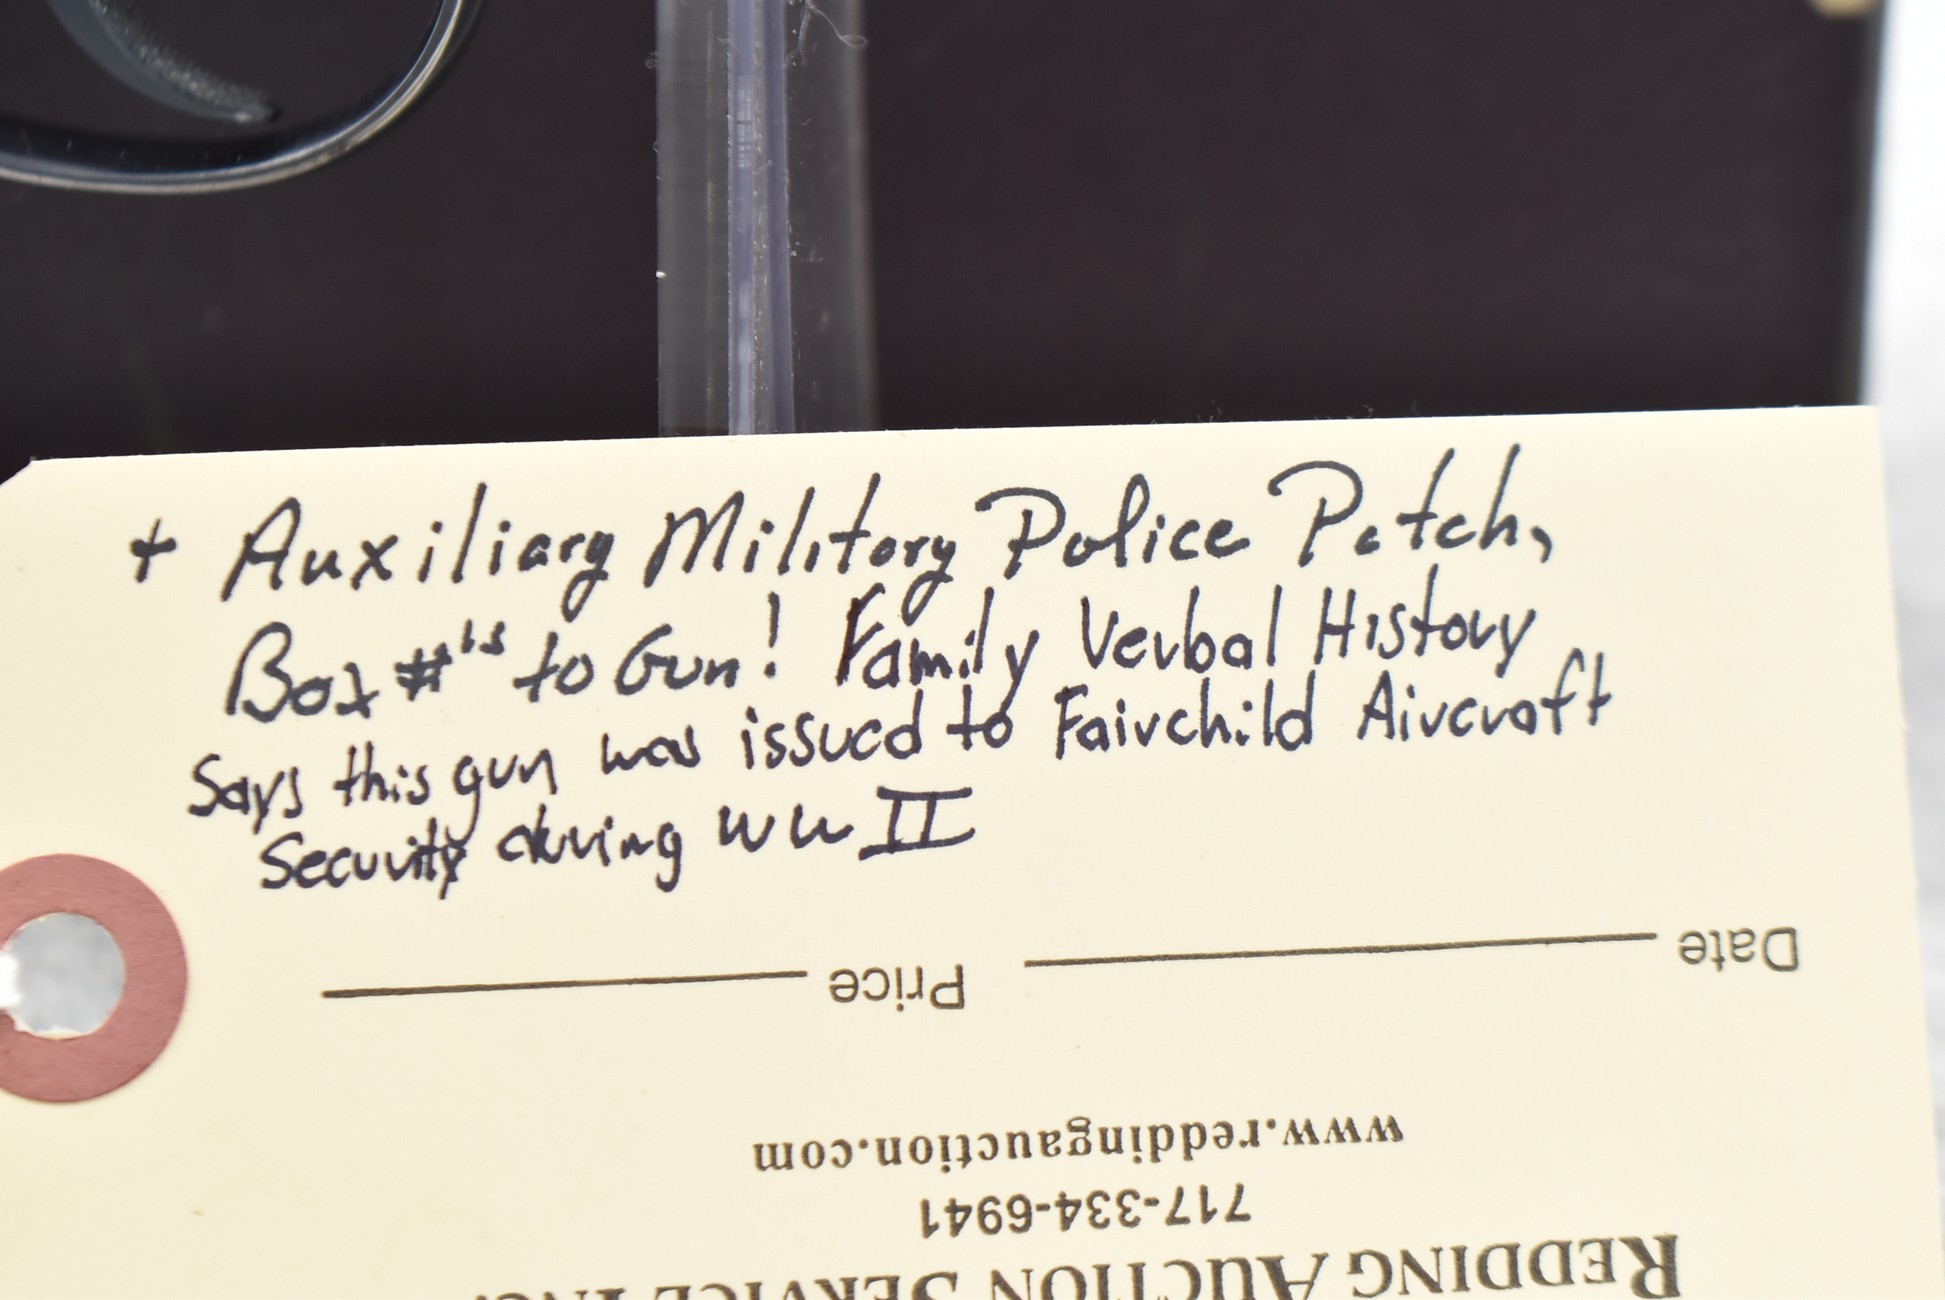 + Auxiliary Military Police Patch,
Box #'s to Gun! Family Verbal History
Says this gun was issued to Fairchild Aircraft
Security during WW II
Date
Price
www.reddingauction.com
717-334-6941
REDDING AUCTION SERVICE INC.